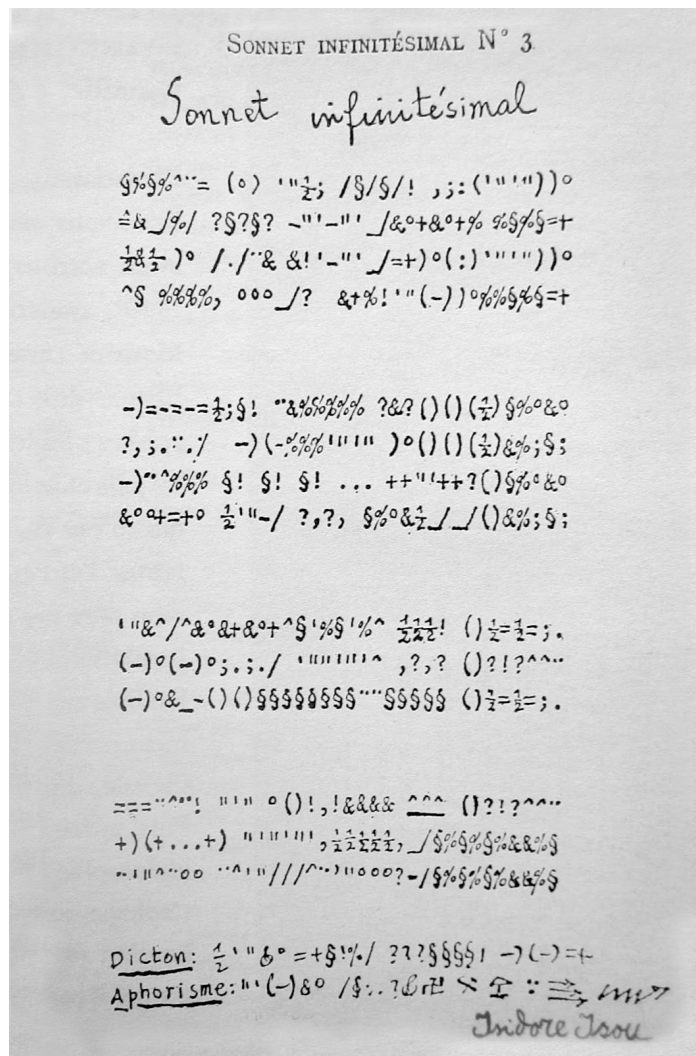 SONNET INFINITÉSIMAL N° 3
Sonnet infinitésimal
§%§%^¨= (o) '"½; /§/§/! ,;:('"'"))°
=̂&_/%/ ?§?§? -"'-"' _/&°+&°+% %§%§=+
½&½ )° /./¨& &!'-"' _/=+)°(:)'"'"))°
^§ %%%%, °°°_/? &+%!'"(-))°%%§%§=+
-)=-=-=½;§! ¨&%%%%% ?&?()()(½)§%°&°
?,;.¨./ -)(-%%%'"'"'" )°()()(½)&%;§;
-)¨^%%% §! §! §! ... ++"'++?()§%°&°
&°°+=+° ½'"-/ ?,?, §%°&½_/_/()&%;§;
'"&^/^&°&+&°+^§'%§'%^ ½½½! ()½=½=;.
(-)°(-)°;.;./ '"'"'"'"^ ,?,? ()?!?^^¨
(-)°&_-()()§§§§§§§§¨¨§§§§§ ()½=½=;.
===¨^¨! "'" °()!,!&&&& ^^^ ()?!?^^¨
+)(+...+) "'"'"'",½½½½½,_/§%§%§%&&%§
Dicton: ½'"&° =+§!%/ ???§§§§! -)(-)=+
Aphorisme:"'(-)&° /§:.?
Isidore Isou